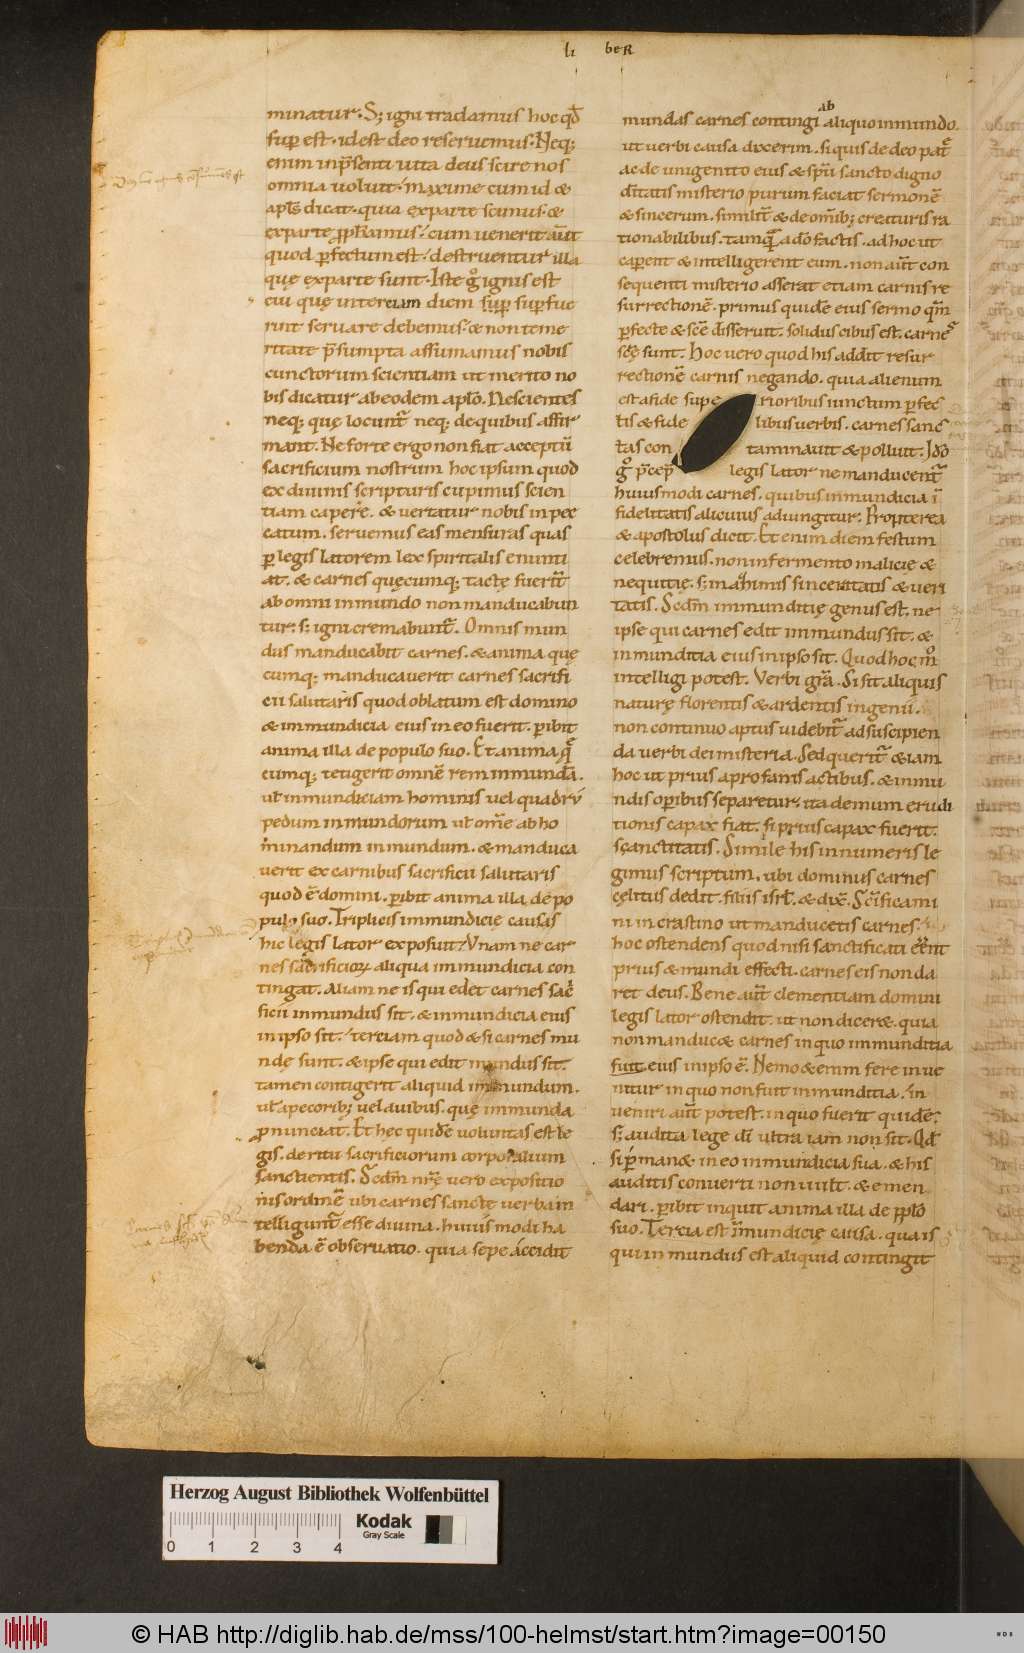 li beR
minatur. S; igni tradamus hoc qd̄
suꝑ est. idest deo reseruemus. Neq;
enim inp̄senti uita deus scire nos
omnia uoluit. maxime cum id &
apłs dicat. quia exparte scimus. &
exparte ꝓph&amus. cum uenerit aūt
quod ꝑfectum est. destruentur illa
quę exparte sunt. Iste g̊ ignis est
cui quę interciam diem suꝑ suꝑfue
rint seruare debemus. & non teme
ritate p̄sumpta assumamus nobis
cunctorum scientiam ut merito no
bis dicatur abeodem apło. Nescientes
neq; quę locunt᷑ neq; dequibus affir
mant. Ne forte ergo non fiat acceptū
sacrificium nostrum hoc ipsum quod
ex diuinis scripturis cupimus scien
tiam capere. & uertatur nobis in pec
catum. seruemus eas mensuras quas
ꝑ legis latorem lex spiritalis enunti
at. & carnes quęcumq; tactę fuerint
ab omni inmundo non manducabun
tur. s; igni cremabunt᷑. Omnis mun
dus manducabit carnes. & anima quę
cumq; manducauerit carnes sacrifi
cii salutaris quod oblatum est domino
& inmundicia eius in eo fuerit. ꝑibit
anima illa de populo suo. Et anima quę
cumq; tetigerit omnē rem inmundā.
uł inmundiciam hominis uel quadru
pedum inmundorum uł om̄e ab ho
minandum inmundum. & manduca
uerit ex carnibus sacrificii salutaris
quod ē domini. ꝑibit anima illa de po
pulo suo. Triplicis inmundicię causas
hic legis lator exposuit. Vnam ne car
nes sacrificioꝝ aliqua inmundicia con
tingat. Aliam ne is qui edet carnes sacri
ficii inmundus sit. & inmundicia eius
in ipso sit. terciam quod & si carnes mu
ndę sunt. & ipse qui edit mundus sit.
tamen contigerit aliquid inmundum.
uł apecorib; uel auibus. quę inmunda
ꝓnunciat. Et hęc quidē uoluntas est le
gis. de ritu sacrificiorum corporalium
sanctientis. Scdm nr̄ę vero expositio
nis ordinē ubi carnes sanctę uerba in
telligunt᷑ esse diuina. huius modi ha
benda ē obseruatio. quia sepe accidit
mundas carnes contingi ab aliquo inmundo.
ut uerbi causa dixerim. si quis de deo patre
ac de unigenito eius & spū sancto digno
diuinitatis misterio purum faciat sermonē
& sincerum. similit̄ & de omib; creaturis ra
tionabilibus. tamquā ado factis. ad hoc ut
caperent & intelligerent eum. non aūt con
sequenti misterio asserat etiam carnis re
surrectionē. primus quidē eius sermo qm̄
ꝑfecte & scē disseruit. solidus cibus est. carnes
scę sunt. Hoc uero quod his addit resur
rectionē carnis negando. quia alienum
est a fide superioribus iunctum ꝑfec
tis & fidelibus uerbis. carnes sanc
tas contaminauit & polluit. Ido
g̊ p̄cep̄ legis lator ne manducent᷑
huiusmodi carnes. quibus inmundicia ī
fidelitatis alicuius adiungitur. Propterea
& apostolus dicit. Et enim diem festum
celebremus. non in fermento malicię &
nequitię. s; in azimis sinceritatis & ueri
tatis. Scdm inmunditię genus est. ne
ipse qui carnes edit inmundus sit. &
inmunditia eius in ipso sit. Quod hoc m̊
intelligi potest. Verbi gr̄a. Si sit aliquis
naturę florentis & ardentis ingenii.
non continuo aptus uidebit᷑ ad suscipien
da uerbi dei misteria. Sed querit᷑ & iam
hoc ut prius a profanis actibus. & inmu
ndis oꝑibus separetur. ita demum erudi
tionis capax fiat. si prius capax fuerit.
sçanctitatis. Simile his innumeris le
gimus scriptum. ubi dominus carnes
cęlitus dedit. filiis isrł. & dix̄. Scīficami
ni in crastino ut manducetis carnes.
hoc ostendens quod nisi sanctificati eēnt
prius & mundi effecti. carnes eis non da
ret deus. Bene aūt clementiam domini
legis lator ostendit. ut non diceret. quia
non manduc& carnes in quo inmunditia
fuit. eius in ipso ē. Nemo & enim fere in ue
nitur in quo non fuit inmunditia. in
ueniri aūt potest. in quo fuerit quidē.
s; audita lege di ultra iam non sit. Qd̄
si ꝑman& in eo inmundicia sua. & his
auditis conuerti non uult. & emen
dari. ꝑibit inquit anima illa de ppło
suo. Tercia est inmundicię causa. qua is
qui in mundus est aliquid contingit
Herzog August Bibliothek Wolfenbüttel
Kodak
Gray Scale
0 1 2 3 4
© HAB http://diglib.hab.de/mss/100-helmst/start.htm?image=00150